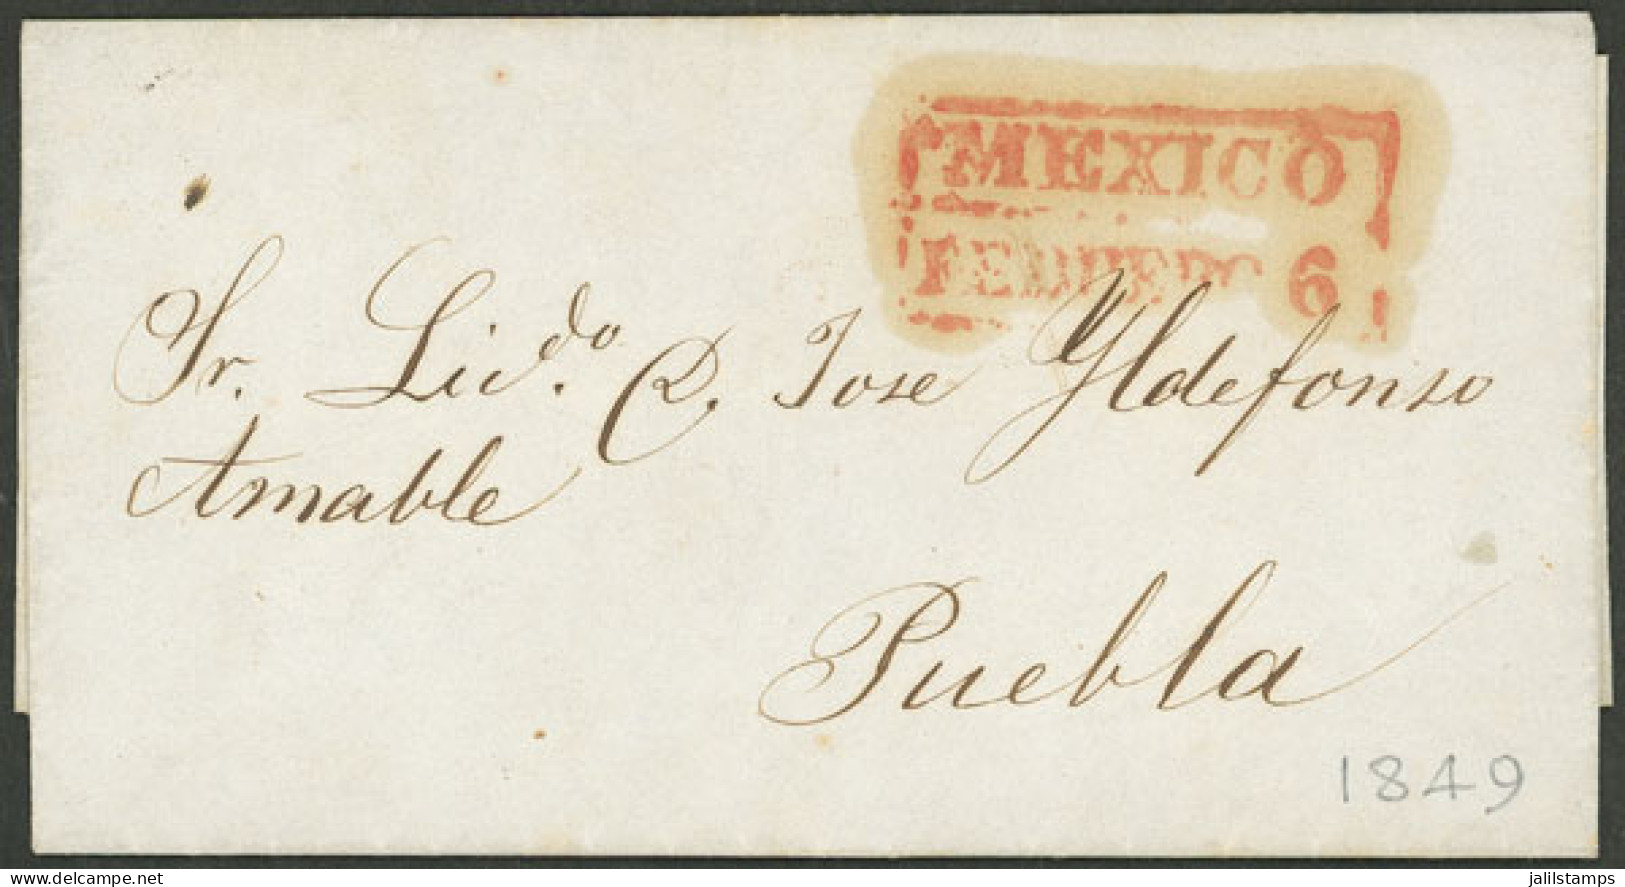 MEXICO
FEBRERO 6
Sr. Licdo. C. Jose Yldefonso
Amable
Puebla
1849
delcampe.net
jalilstamps